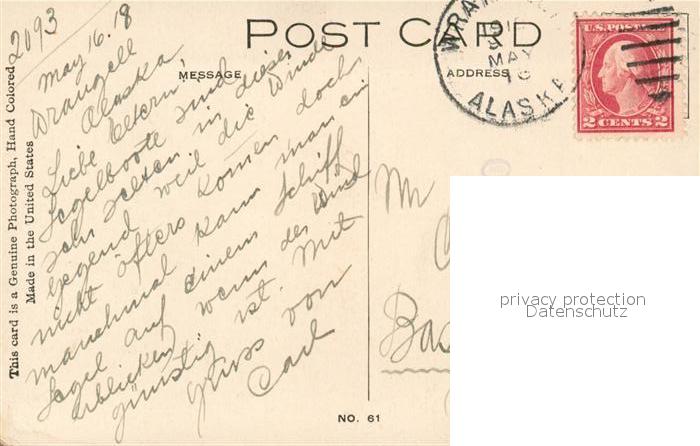 2093
This card is a Genuine Photograph, Hand Colored
Made in the United States
POST CARD
MESSAGE
ADDRESS
MAY
ALASKA
U.S. POSTAGE
2 CENTS 2
May 16. 18
Wrangell
Alaska.
Liebe Eltern!
Segelboote sind in dieser
sehr selten weil die Winde
Gegend
nicht öfters kommen doch
manchmal kann man ein
Segel auf einem Schiff
erblicken wenn der Wind
günstig ist. Mit
Gruss von
Carl
Mr
Bas
NO. 61
privacy protection
Datenschutz